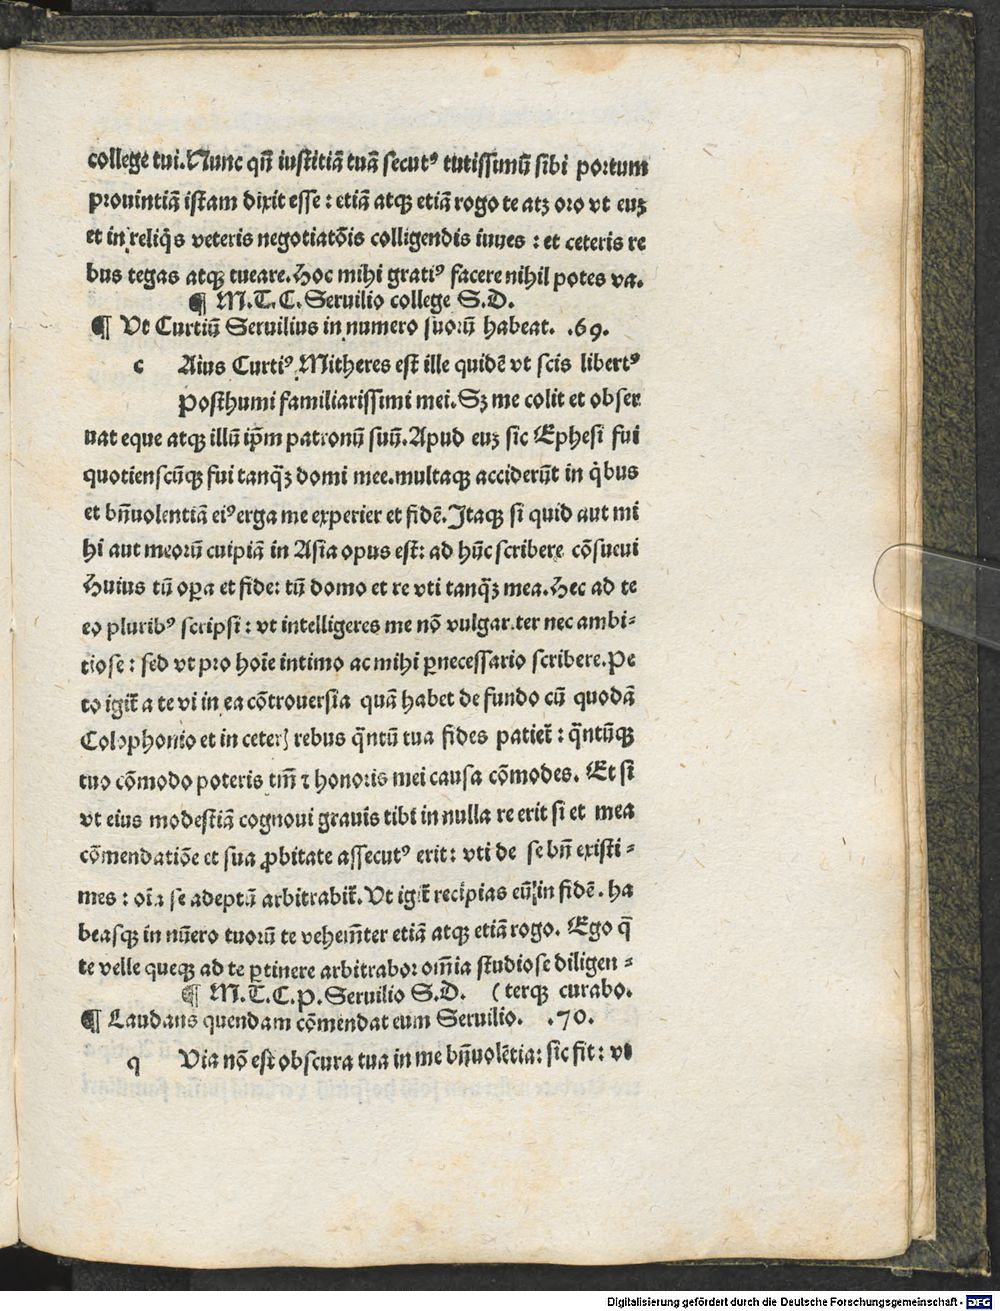 college tui. Nunc qñ iustitiã tuã secutꝰ tutissimũ sibi portum
prouintiã istam dixit esse : etiã atqꝫ etiã rogo te atꝫ oro vt euꝫ
et in reliq̃s veteris negotiatõis colligendis iuues : et ceteris re
bus tegas atqꝫ tueare. Hoc mihi gratiꝰ facere nihil potes va.
¶ M.T.C. Seruilio college S.D.
¶ Vt Curtiũ Seruilius in numero suorũ habeat. .69.
c Aius Curtiꝰ Mitheres est ille quidẽ vt scis libertꝰ
Posthumi familiarissimi mei. Sꝫ me colit et obser
uat eque atqꝫ illũ ip̃m patronũ suũ. Apud euꝫ sic Ephesi fui
quotienscũqꝫ fui tanq̃ꝫ domi mee. multaqꝫ acciderũt in q̃bus
et bñuolentiã eiꝰ erga me experier et fidẽ. Itaqꝫ si quid aut mi
hi aut meorũ cuipiã in Asia opus est: ad hũc scribere cõsueui
Huius tũ oꝑa et fide: tũ domo et re vti tanq̃ꝫ mea. Hec ad te
eo pluribꝰ scripsi : vt intelligeres me nõ vulgar.ter nec ambi-
tiose : sed vt pro hoĩe intimo ac mihi ꝑnecessario scribere. Pe
to igit̃ a te vi in ea cõtrouersia quã habet de fundo cũ quodã
Colophonio et in ceterꝭ rebus q̃ntũ tua fides patiet̃ : q̃ntũqꝫ
tuo cõmodo poteris tm̃ ⁊ honoris mei causa cõmodes. Et si
vt eius modestiã cognoui grauis tibi in nulla re erit si et mea
cõmendatiõe et sua ꝓbitate assecutꝰ erit : vti de se bñ existi-
mes : oĩa se adeptũ arbitrabit̃. Vt igit̃ recipias eũ in fidẽ. ha
beasqꝫ in nũero tuorũ te vehem̃ter etiã atqꝫ etiã rogo. Ego q̃
te velle queqꝫ ad te ꝑtinere arbitrabor om̃ia studiose diligen-
¶ M.T.C.P. Seruilio S.D. (terqꝫ curabo.
¶ Laudans quendam cõmendat eum Seruilio. .70.
q Via nõ est obscura tua in me bñuolẽtia: sic fit : vt
Digitalisierung gefördert durch die Deutsche Forschungsgemeinschaft - DFG